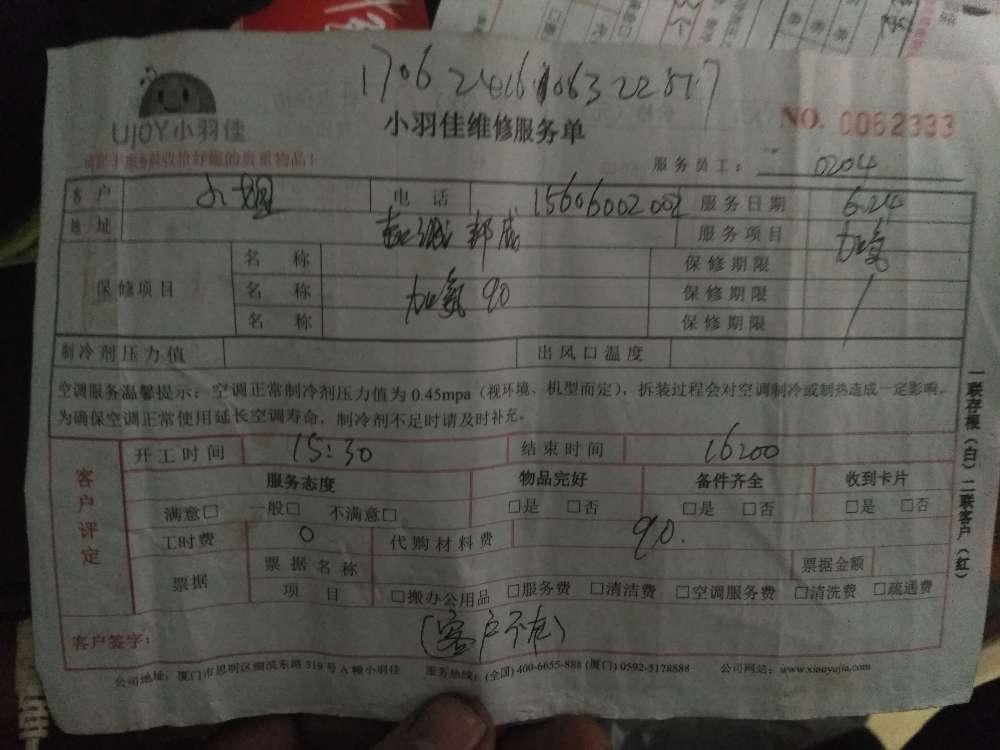 UJOY小羽佳
小羽佳维修服务单
NO. 0062333
服务员工： 0204
客户 电话 15606002002 服务日期 6.24
地址 服务项目 加氟
保修项目 名称 保修期限
名称 加氟 90 保修期限
名称 保修期限
制冷剂压力值 出风口温度
空调服务温馨提示：空调正常制冷剂压力值为 0.45mpa（视环境、机型而定），拆装过程会对空调制冷或制热造成一定影响。
为确保空调正常使用延长空调寿命，制冷剂不足时请及时补充。
开工时间 15:30 结束时间 16:00
客户评定
服务态度 物品完好 备件齐全 收到卡片
满意□ 一般□ 不满意□ □是 □否 □是 □否 □是 □否
工时费 0 代购材料费 90.
票据 票据名称 票据金额
项目 □搬办公用品 □服务费 □清洁费 □空调服务费 □清洗费 □疏通费
客户签字： (客户不在)
公司地址：厦门市思明区湖滨东路 319 号 A 幢小羽佳 服务热线：(全国) 400-6655-888 (厦门) 0592-5178888 公司网站：www.xiaoyujia.com
一联存根（白）二联客户（红）